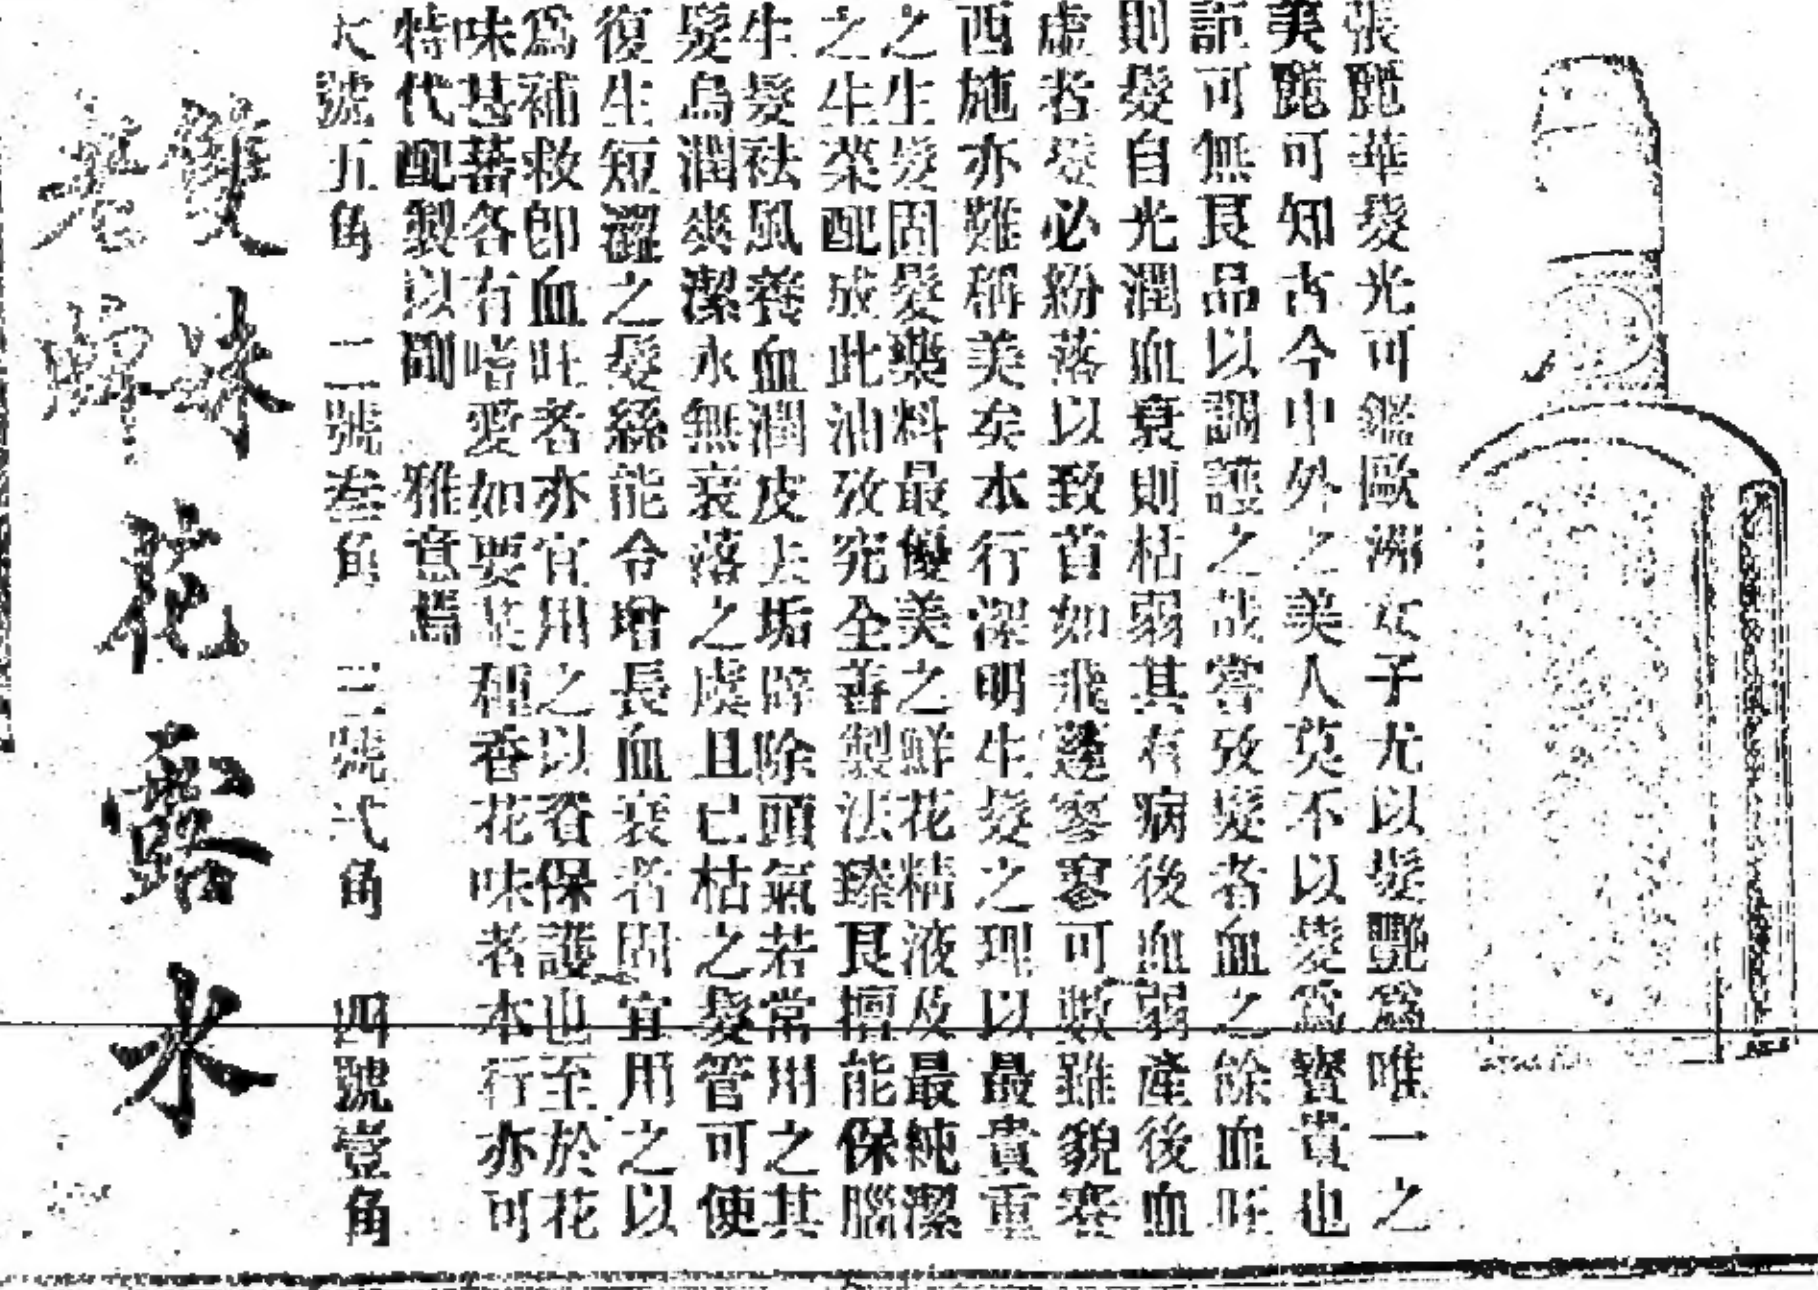 張麗華髮光可鑑歐洲女子尤以髮艷爲唯一之
美麗可知古今中外之美人莫不以髮爲寶貴也
詎可無良品以調護之哉嘗攷髮者血之餘血旺
則髮自光潤血衰則枯弱其有病後血弱產後血
虛者髮必紛落以致首如飛蓬寥寥可數雖貌賽
西施亦難稱美矣本行深明生髮之理以最貴重
之生髮固髮藥料最優美之鮮花精液及最純潔
之生菜配成此油攷究全善製法臻良擅能保腦
生髮祛風養血潤皮去垢辟除頭氣若常用之其
髮烏潤爽潔永無衰落之虞且已枯之髮管可使
復生短澀之髮絲能令增長血衰者固宜用之以
爲補救卽血旺者亦宜用之以資保護也至於花
味甚蕃各有嗜愛如要某種香花味者本行亦可
特代配製以副 雅意焉
大號五角 二號叁角 三號弍角 四號壹角
雙妹
老牌
花露水